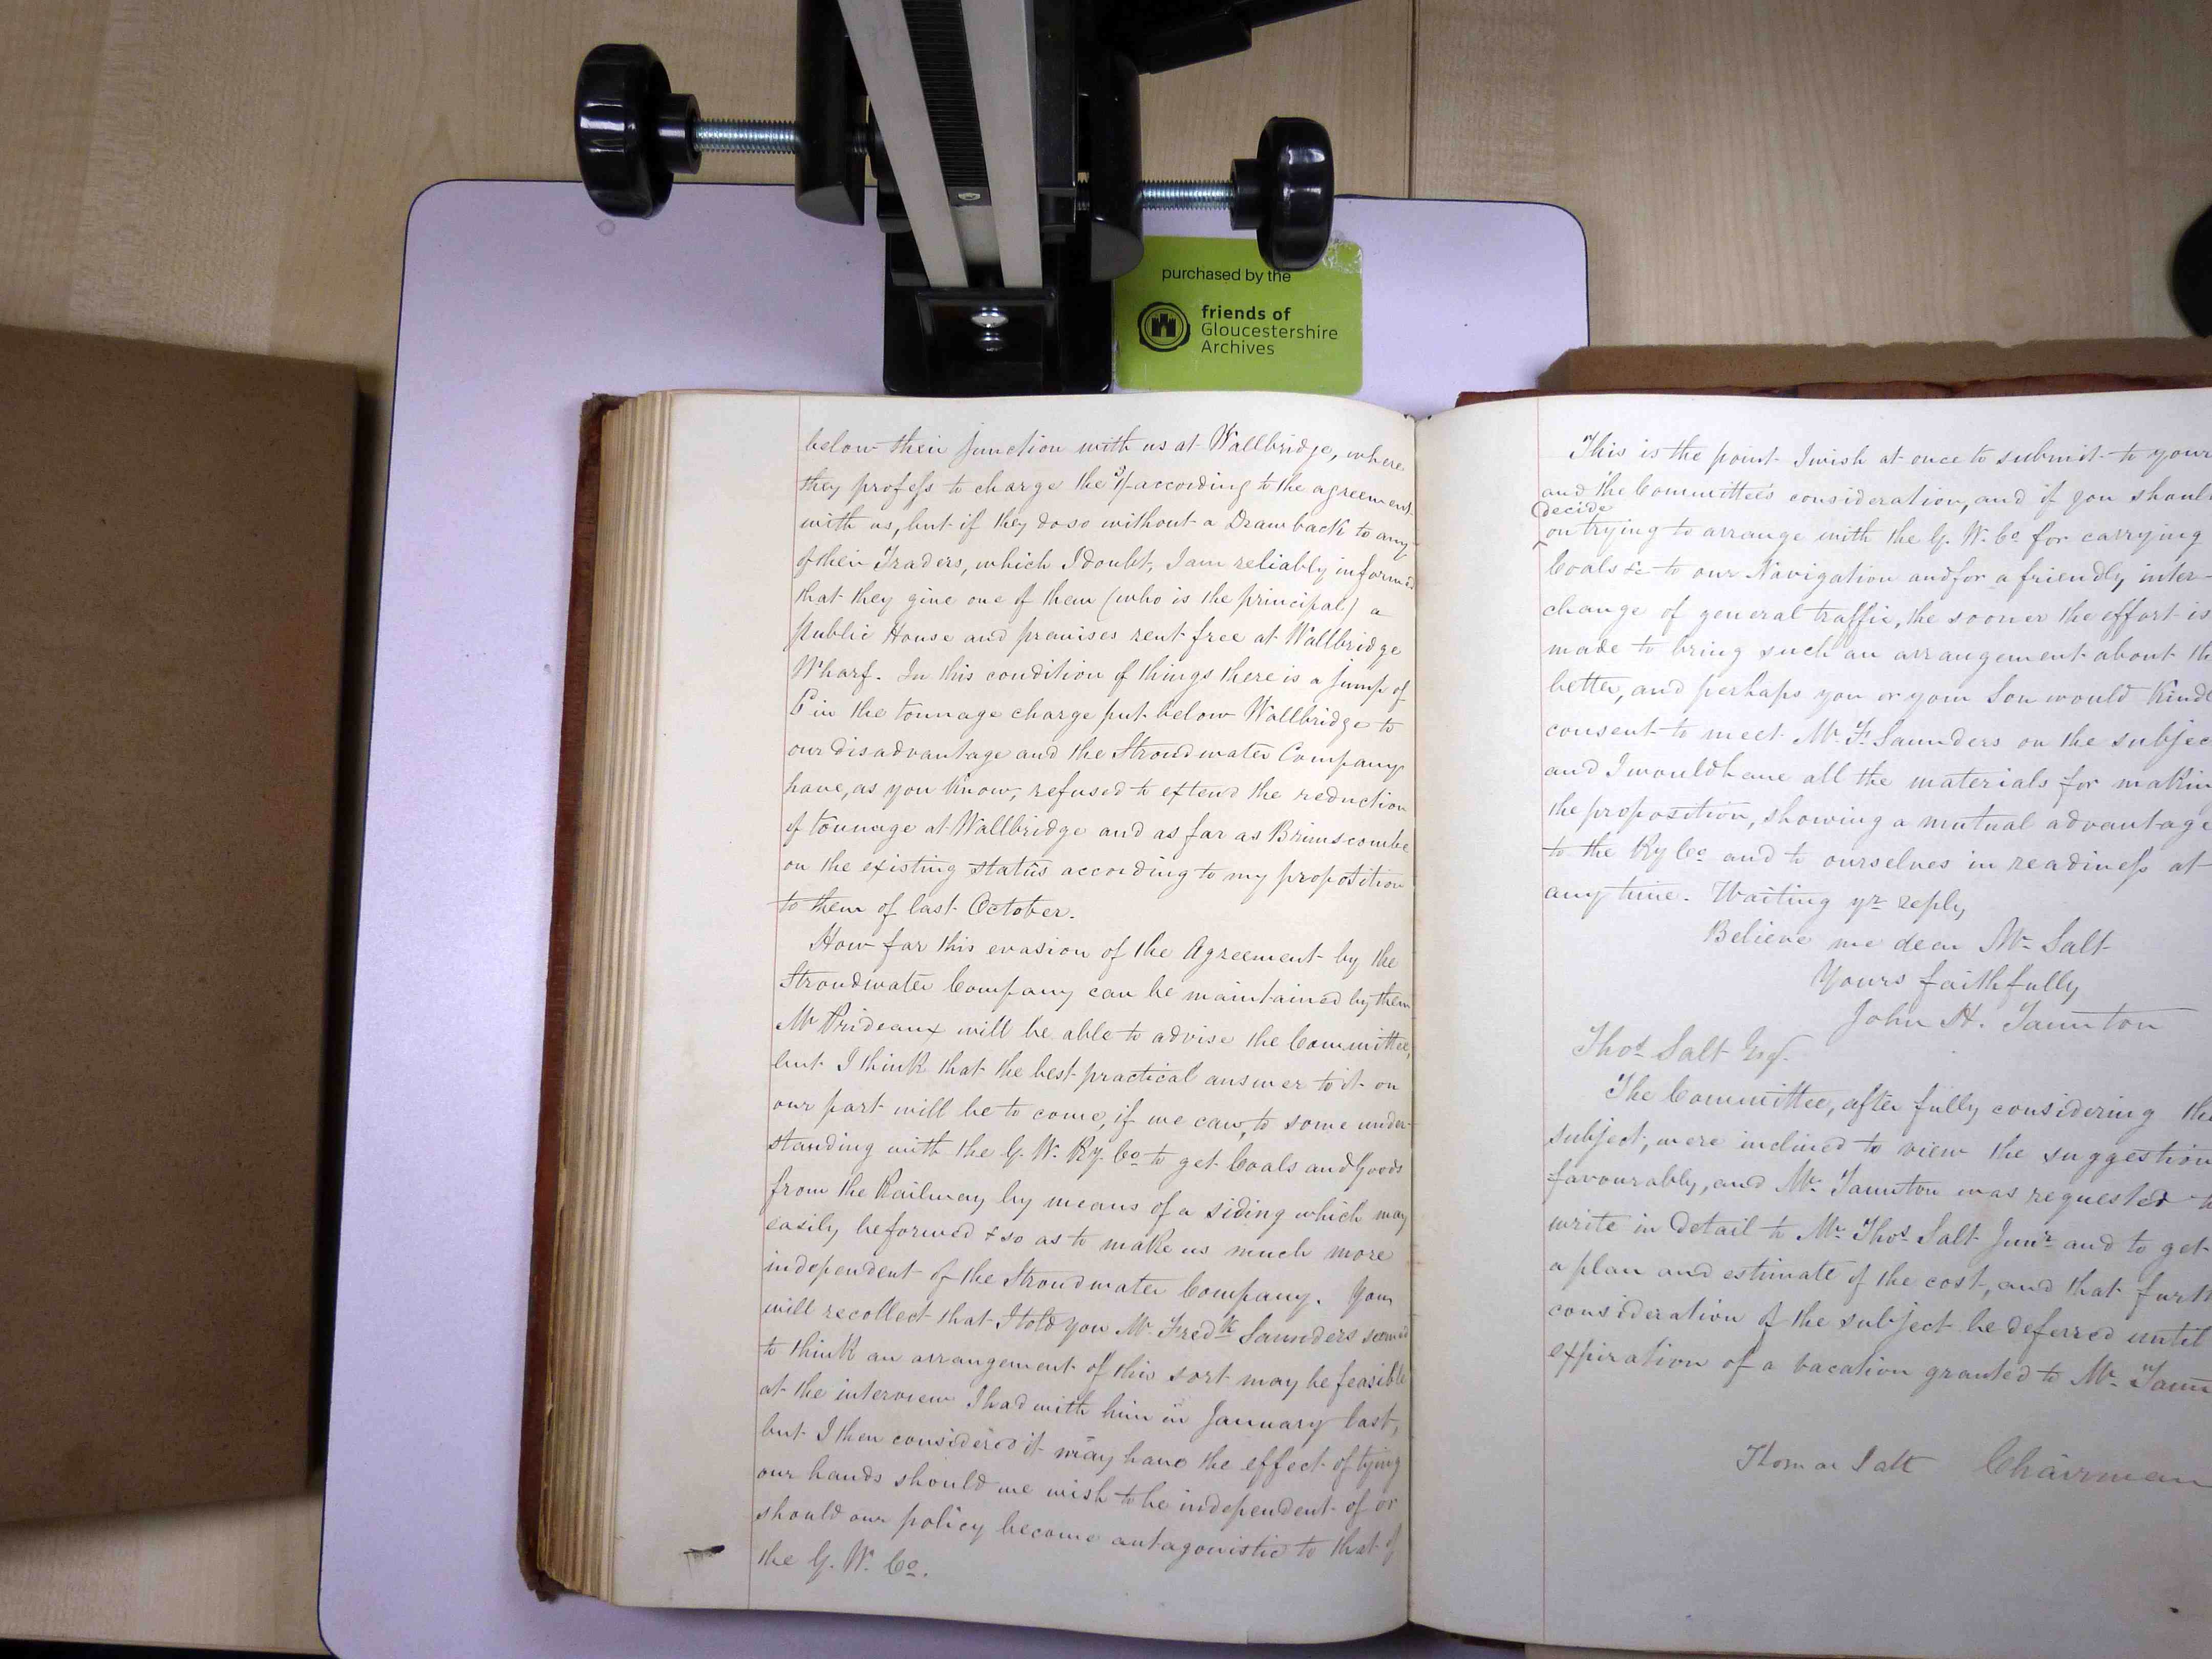 purchased by the
friends of
Gloucestershire
Archives
below their junction with us at Wallbridge, where
they profess to charge the according to the agreement
with us, but if they do so without a Drawback to any
of their Traders, which I doubt, I am reliably informed
that they give one of them (who is the principal) a
public House and premises rent free at Wallbridge
Wharf. In this condition of things there is a jump of
in the tonnage charge put below Wallbridge to
our disadvantage and the Stroudwater Company
have, as you know, refused to extend the reduction
of tonnage at Wallbridge and as far as Brimscombe
on the existing status according to my proposition
to them of last October.
How far this evasion of the Agreement by the
Stroudwater Company can be maintained by them
Mr Prideaux will be able to advise the Committee,
but I think that the best practical answer to it on
our part will be to come, if we can, to some under-
standing with the G. W. Ry. Co to get Coals and Goods
from the Railway by means of a siding which may
easily be formed & so as to make us much more
independent of the Stroudwater Company. You
will recollect that I told you Mr Fredk Saunders seemed
to think an arrangement of this sort may be feasible
at the interview I had with him in January last,
but I then considered it may have the effect of tying
our hands should we wish to be independent of or
should our policy become antagonistic to that of
the G. W. Co.
This is the point I wish at once to submit to your
and the Committee's consideration, and if you should
decide
on trying to arrange with the G. W. Co for carrying
Coals &c to our Navigation and for a friendly inter-
change of general traffic, the sooner the effort is
made to bring such an arrangement about the
better, and perhaps you or your Son would kindl
consent to meet Mr F. Saunders on the subjec
and I would have all the materials for makin
the proposition, showing a mutual advantage
to the Ry Co and to ourselves in readiness at
any time. Waiting yr reply,
Believe me dear Mr Salt
Yours faithfully
John H. Taunton
Thos Salt Esq.
The Committee, after fully considering the
subject, were inclined to view the suggestion
favourably, and Mr Taunton was requested to
write in detail to Mr Thos Salt Junr and to get
a plan and estimate of the cost, and that furth
consideration of the subject be deferred until
expiration of a vacation granted to Mr Taun
Thomas Salt Chairman